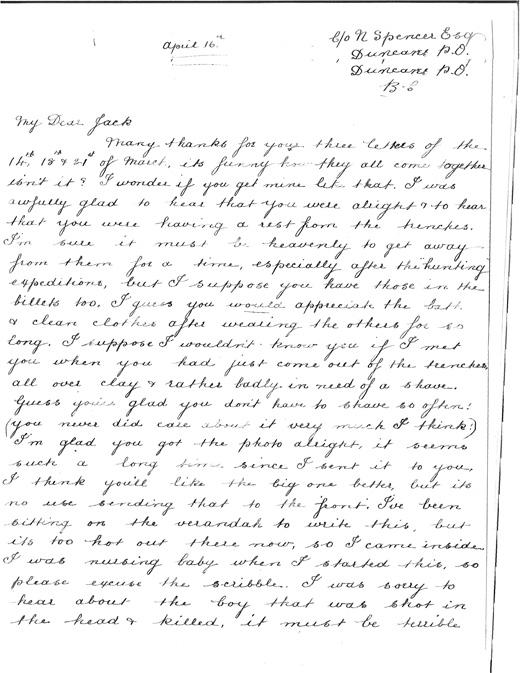 April 16th
C/o N Spencer Esq
Duncans P.O.
Duncans P.O.
B.C
My Dear Jack
Many thanks for your three letters of the
14th, 18th & 21st of March, its funny how they all come together
isn't it? I wonder if you get mine like that. I was
awfully glad to hear that you were alright & to hear
that you were having a rest from the trenches.
I'm sure it must be heavenly to get away
from them for a time, especially after the "hunting
expeditions, but I suppose you have those in the
billets too. I guess you would appreciate the bath
& clean clothes after wearing the others for so
long. I suppose I wouldn't know you if I met
you when you had just come out of the trenches,
all over clay & rather badly in need of a shave.
Guess you're glad you don't have to shave so often!
(you never did care about it very much I think?)
I'm glad you got the photo alright, it seems
such a long time since I sent it to you,
I think you'll like the big one better, but its
no use sending that to the front. I've been
sitting on the verandah to write this, but
its too hot out there now, so I came inside.
I was nursing baby when I started this, so
please excuse the scribble. I was sorry to
hear about the boy that was shot in
the head & killed, it must be terrible